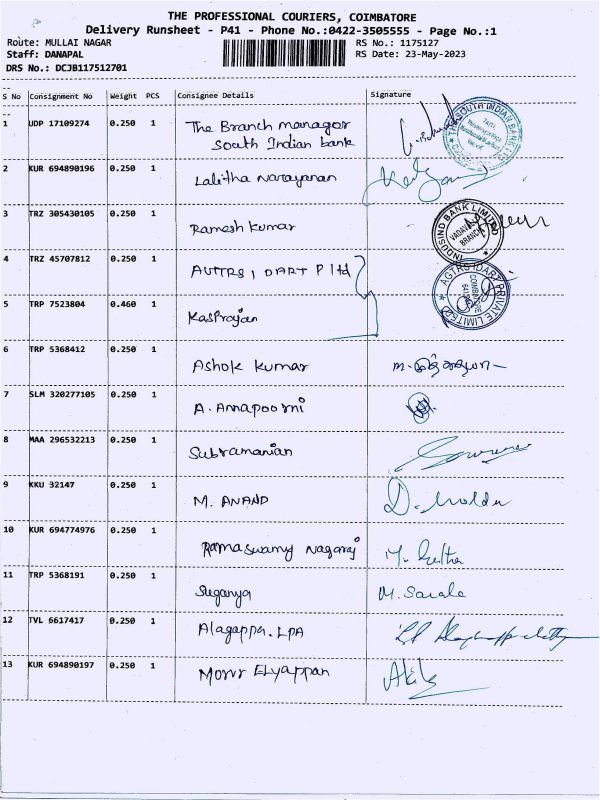 THE PROFESSIONAL COURIERS, COIMBATORE
Delivery Runsheet - P41 - Phone No.:0422-3505555 - Page No.:1
Route: MULLAI NAGAR RS No.: 1175127
Staff: DANAPAL RS Date: 23-May-2023
DRS No.: DCJB117512701
S No Consignment No Weight PCS Consignee Details Signature
1 UDP 17109274 0.250 1 The Branch manager
South Indian bank
THE SOUTH INDIAN BANK LTD
2 KUR 694890196 0.250 1 Lalitha Narayanan
3 TRZ 305430105 0.250 1 Ramesh kumar
INDUSIND BANK LIMITED
BRANCH
4 TRZ 45707812 0.250 1 AUTRS, DART P ltd
AGTRS IDART PRIVATE LIMITED
5 TRP 7523804 0.460 1
6 TRP 5368412 0.250 1 Ashok kumar
7 SLM 320277105 0.250 1 A. Annapoorni
8 MAA 296532213 0.250 1 Subramanian
9 KKU 32147 0.250 1 M. ANAND
10 KUR 694774976 0.250 1 Ramaswamy Nagaraj
11 TRP 5368191 0.250 1 Suganya M. Sarala
12 TVL 6617417 0.250 1 Alagappa. LPA
13 KUR 694890197 0.250 1